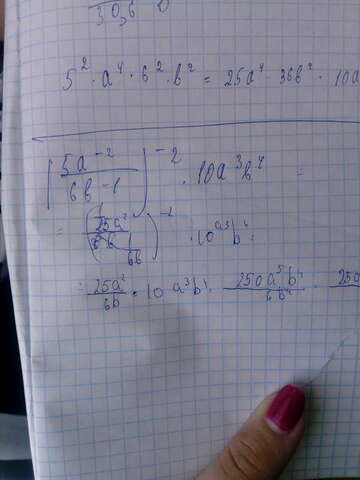 30,6
5² · a⁴ · 6² · b² = 25a⁴ · 36b² · 10a
(5a⁻² / 6b⁻¹)⁻² · 10a³b⁴ =
= ( 25a² / 6b )⁻² · 10a³b⁴ =
= 25a² / 6b · 10 a³b⁴ = 250a⁵b⁴ / 6b⁴ = 250